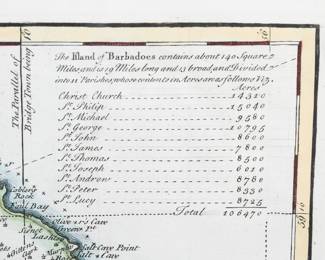 The Island of Barbadoes contains about 140 Square
Miles, and is 29 Miles long and 13 broad, and Divided
into 11 Parishes, whose contents in Acres are as follows Viz.
Acres
Christ Church 14320
St. Philip 15040
St. Michael 9580
St. George 10795
St. John 8600
St. James 7800
St. Thomas 8500
St. Joseph 6010
St. Andrew 8780
St. Peter 8330
St. Lucy 8725
Total 106470
The Parallel of
Bridge Town being
10'
59
10
Coblers
Rock
Foul Bay
Oliver's Cave
Green's Pt.
Salt Cave Point
Salt Cave